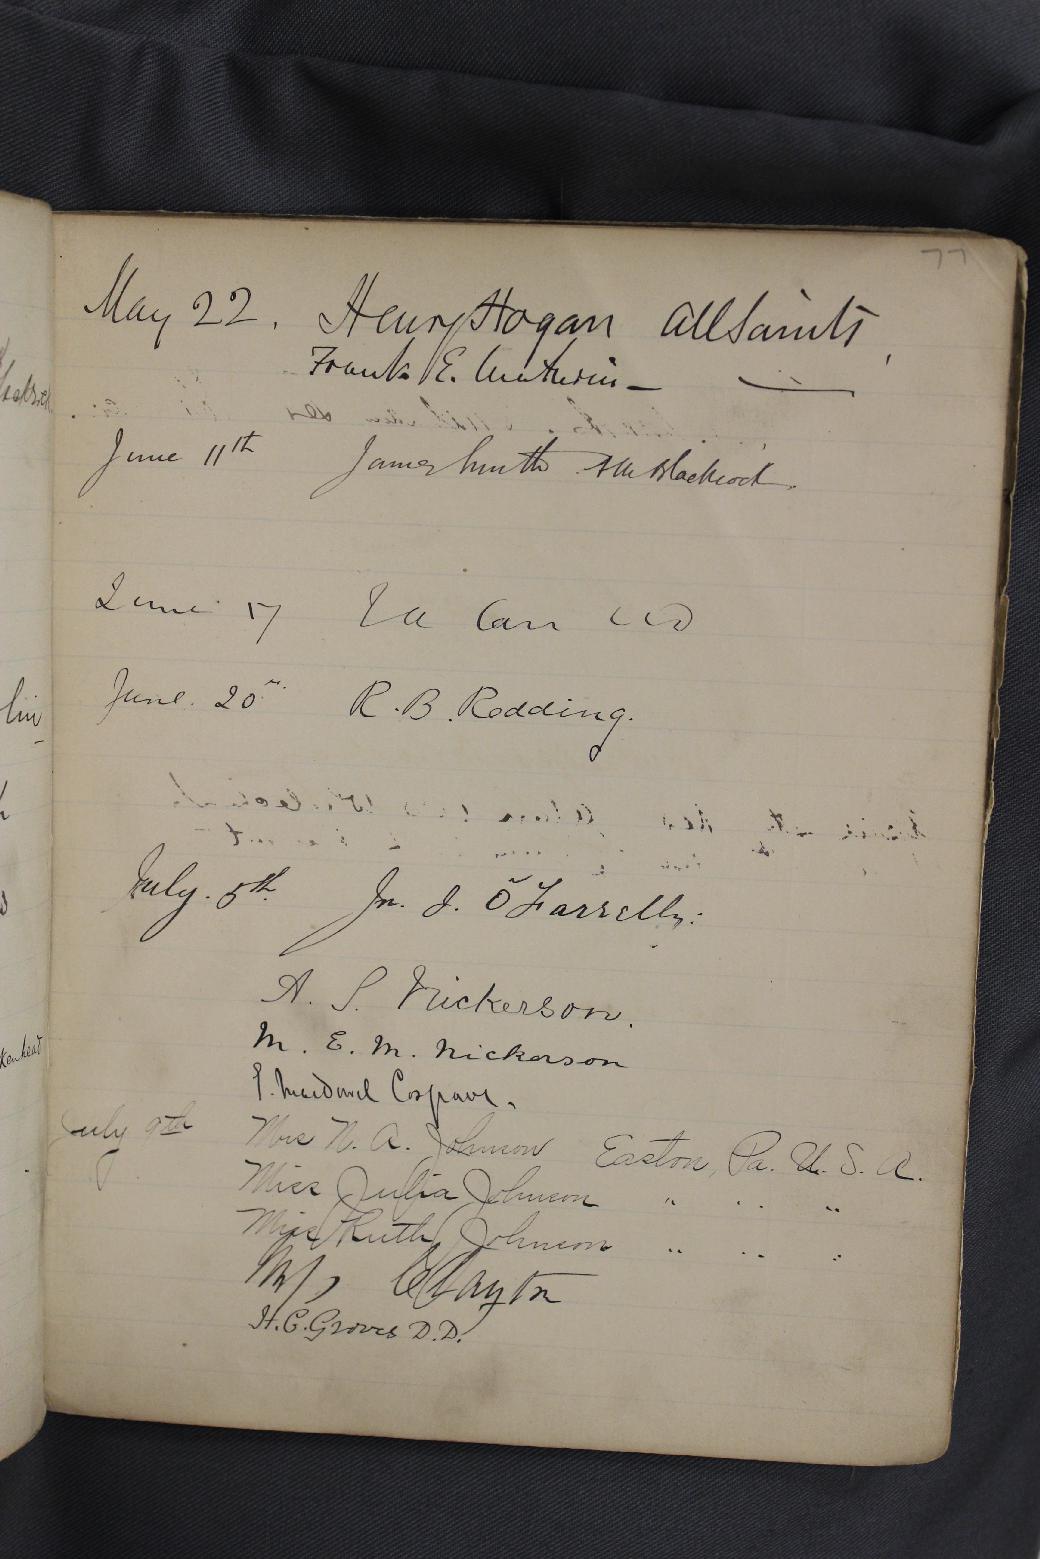 77
May 22. Henry Hogan All Saints,
Frank E.
June 11th James Smith
June 17 Carr
June. 20 R. B. Redding.
July. 5th Jn. J. O'Farrelly:
A. S. Nickerson.
M. E. M. Nickerson
E. MacDowel Cosgrave.
July 9th Mrs N. A. Johnson Easton, Pa. U. S. A.
Miss Julia Johnson " " "
Miss Ruth Johnson " " "
Clayton
H. C. Groves D.D.